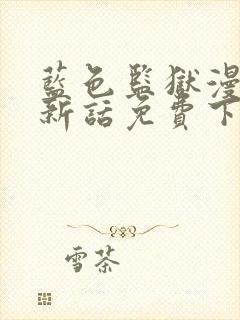 藍色監獄漫
新話免費下
雪茶